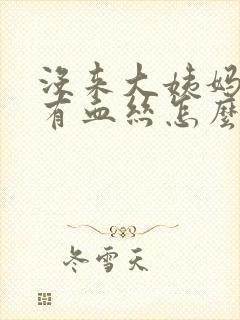 没来大姨妈
有血丝怎麼
冬雪天